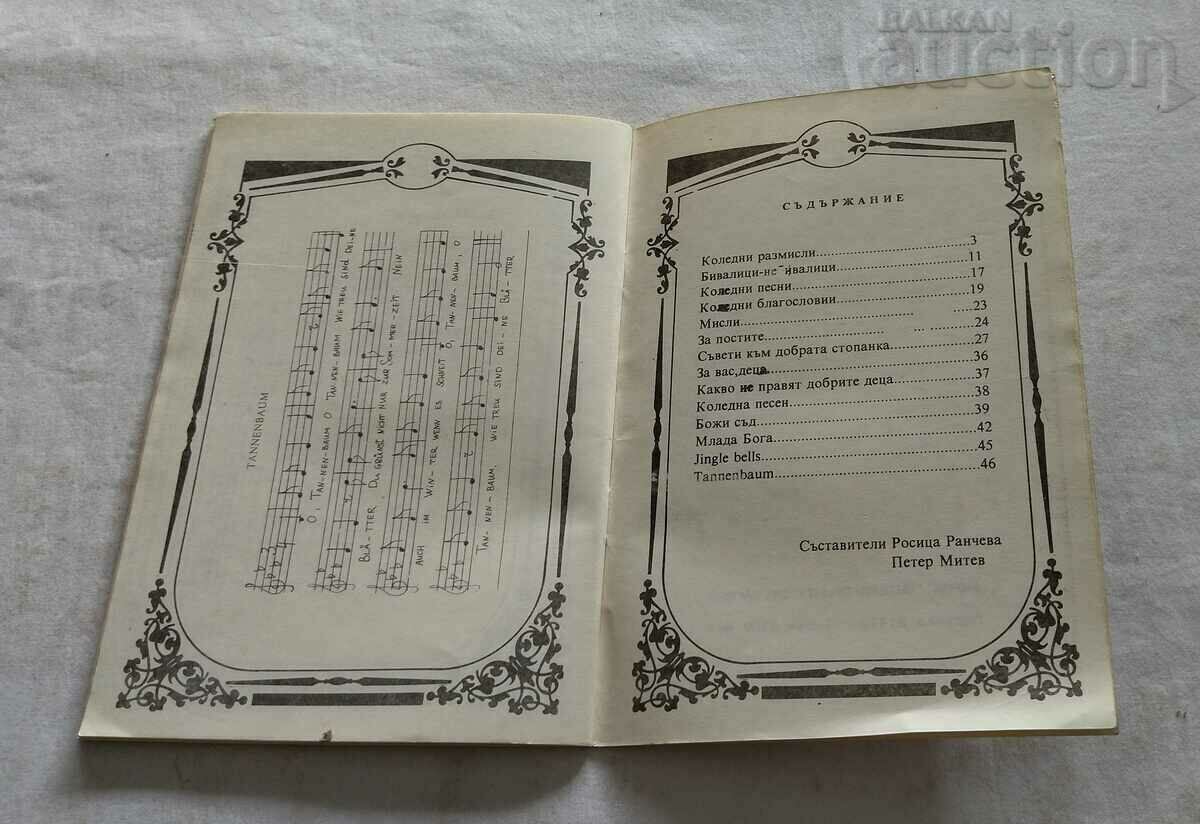 BALKAN
auction
TANNENBAUM
O, TAN-NEN-BAUM O TAN NEN-BAUM WIE TREU SIND DEI-NE
BLÄ-TTER, DU GRÜNST NICHT NUR ZUR SOM-MER-ZEIT NEIN
AUCH IM WIN-TER WENN ES SCHNEIT O, TAN-NEN-BAUM, O
TAN-NEN-BAUM, WIE TREU SIND DEI-NE BLÄ-TTER
СЪДЪРЖАНИЕ
Коледни размисли.....3
Бивалици-не-ивалици.....11
Коледни песни.....17
Коледни благословии.....19
Мисли.....23
За постите.....24
Съвети към добрата стопанка.....27
За вас,деца.....36
Какво не правят добрите деца.....37
Коледна песен.....38
Божи съд.....39
Млада Бога.....42
Jingle bells.....45
Tannenbaum.....46
Съставители Росица Ранчева
Петер Митев